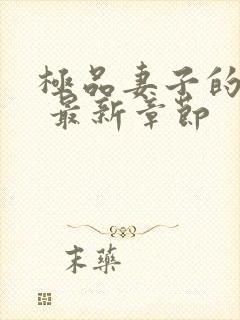 極品妻子的
最新章節
末藥